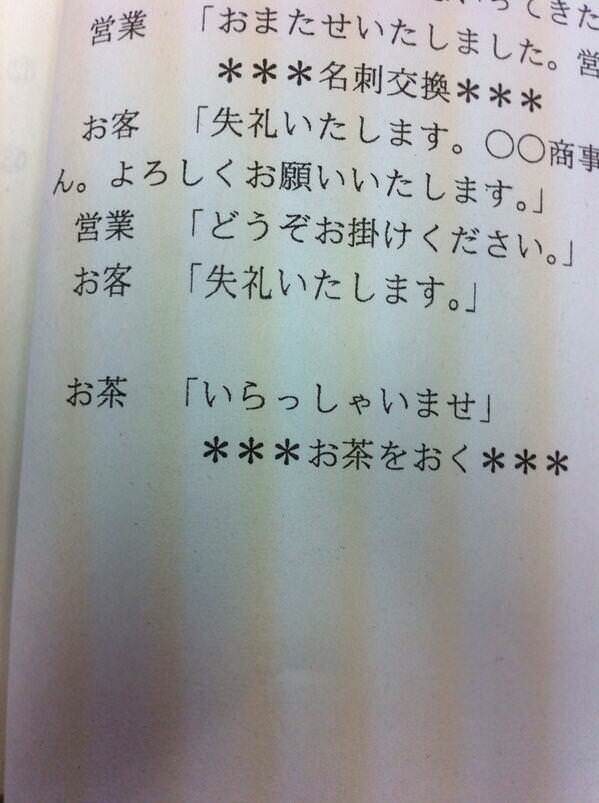 ってきた
営業 「おまたせいたしました。営
＊＊＊名刺交換＊＊＊
お客 「失礼いたします。〇〇商事
ん。よろしくお願いいたします。」
営業 「どうぞお掛けください。」
お客 「失礼いたします。」
お茶 「いらっしゃいませ」
＊＊＊お茶をおく＊＊＊